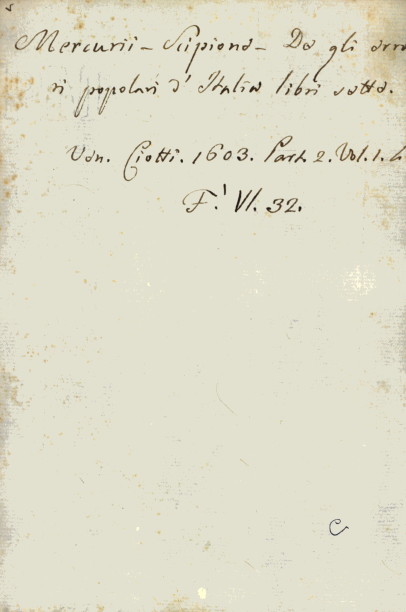 Mercurii - Scipione - De gli erro
ri popolari d' Italia libri sette.
Ven. Ciotti. 1603. Part. 2. Vol. 1.
F.' VI. 32.
C